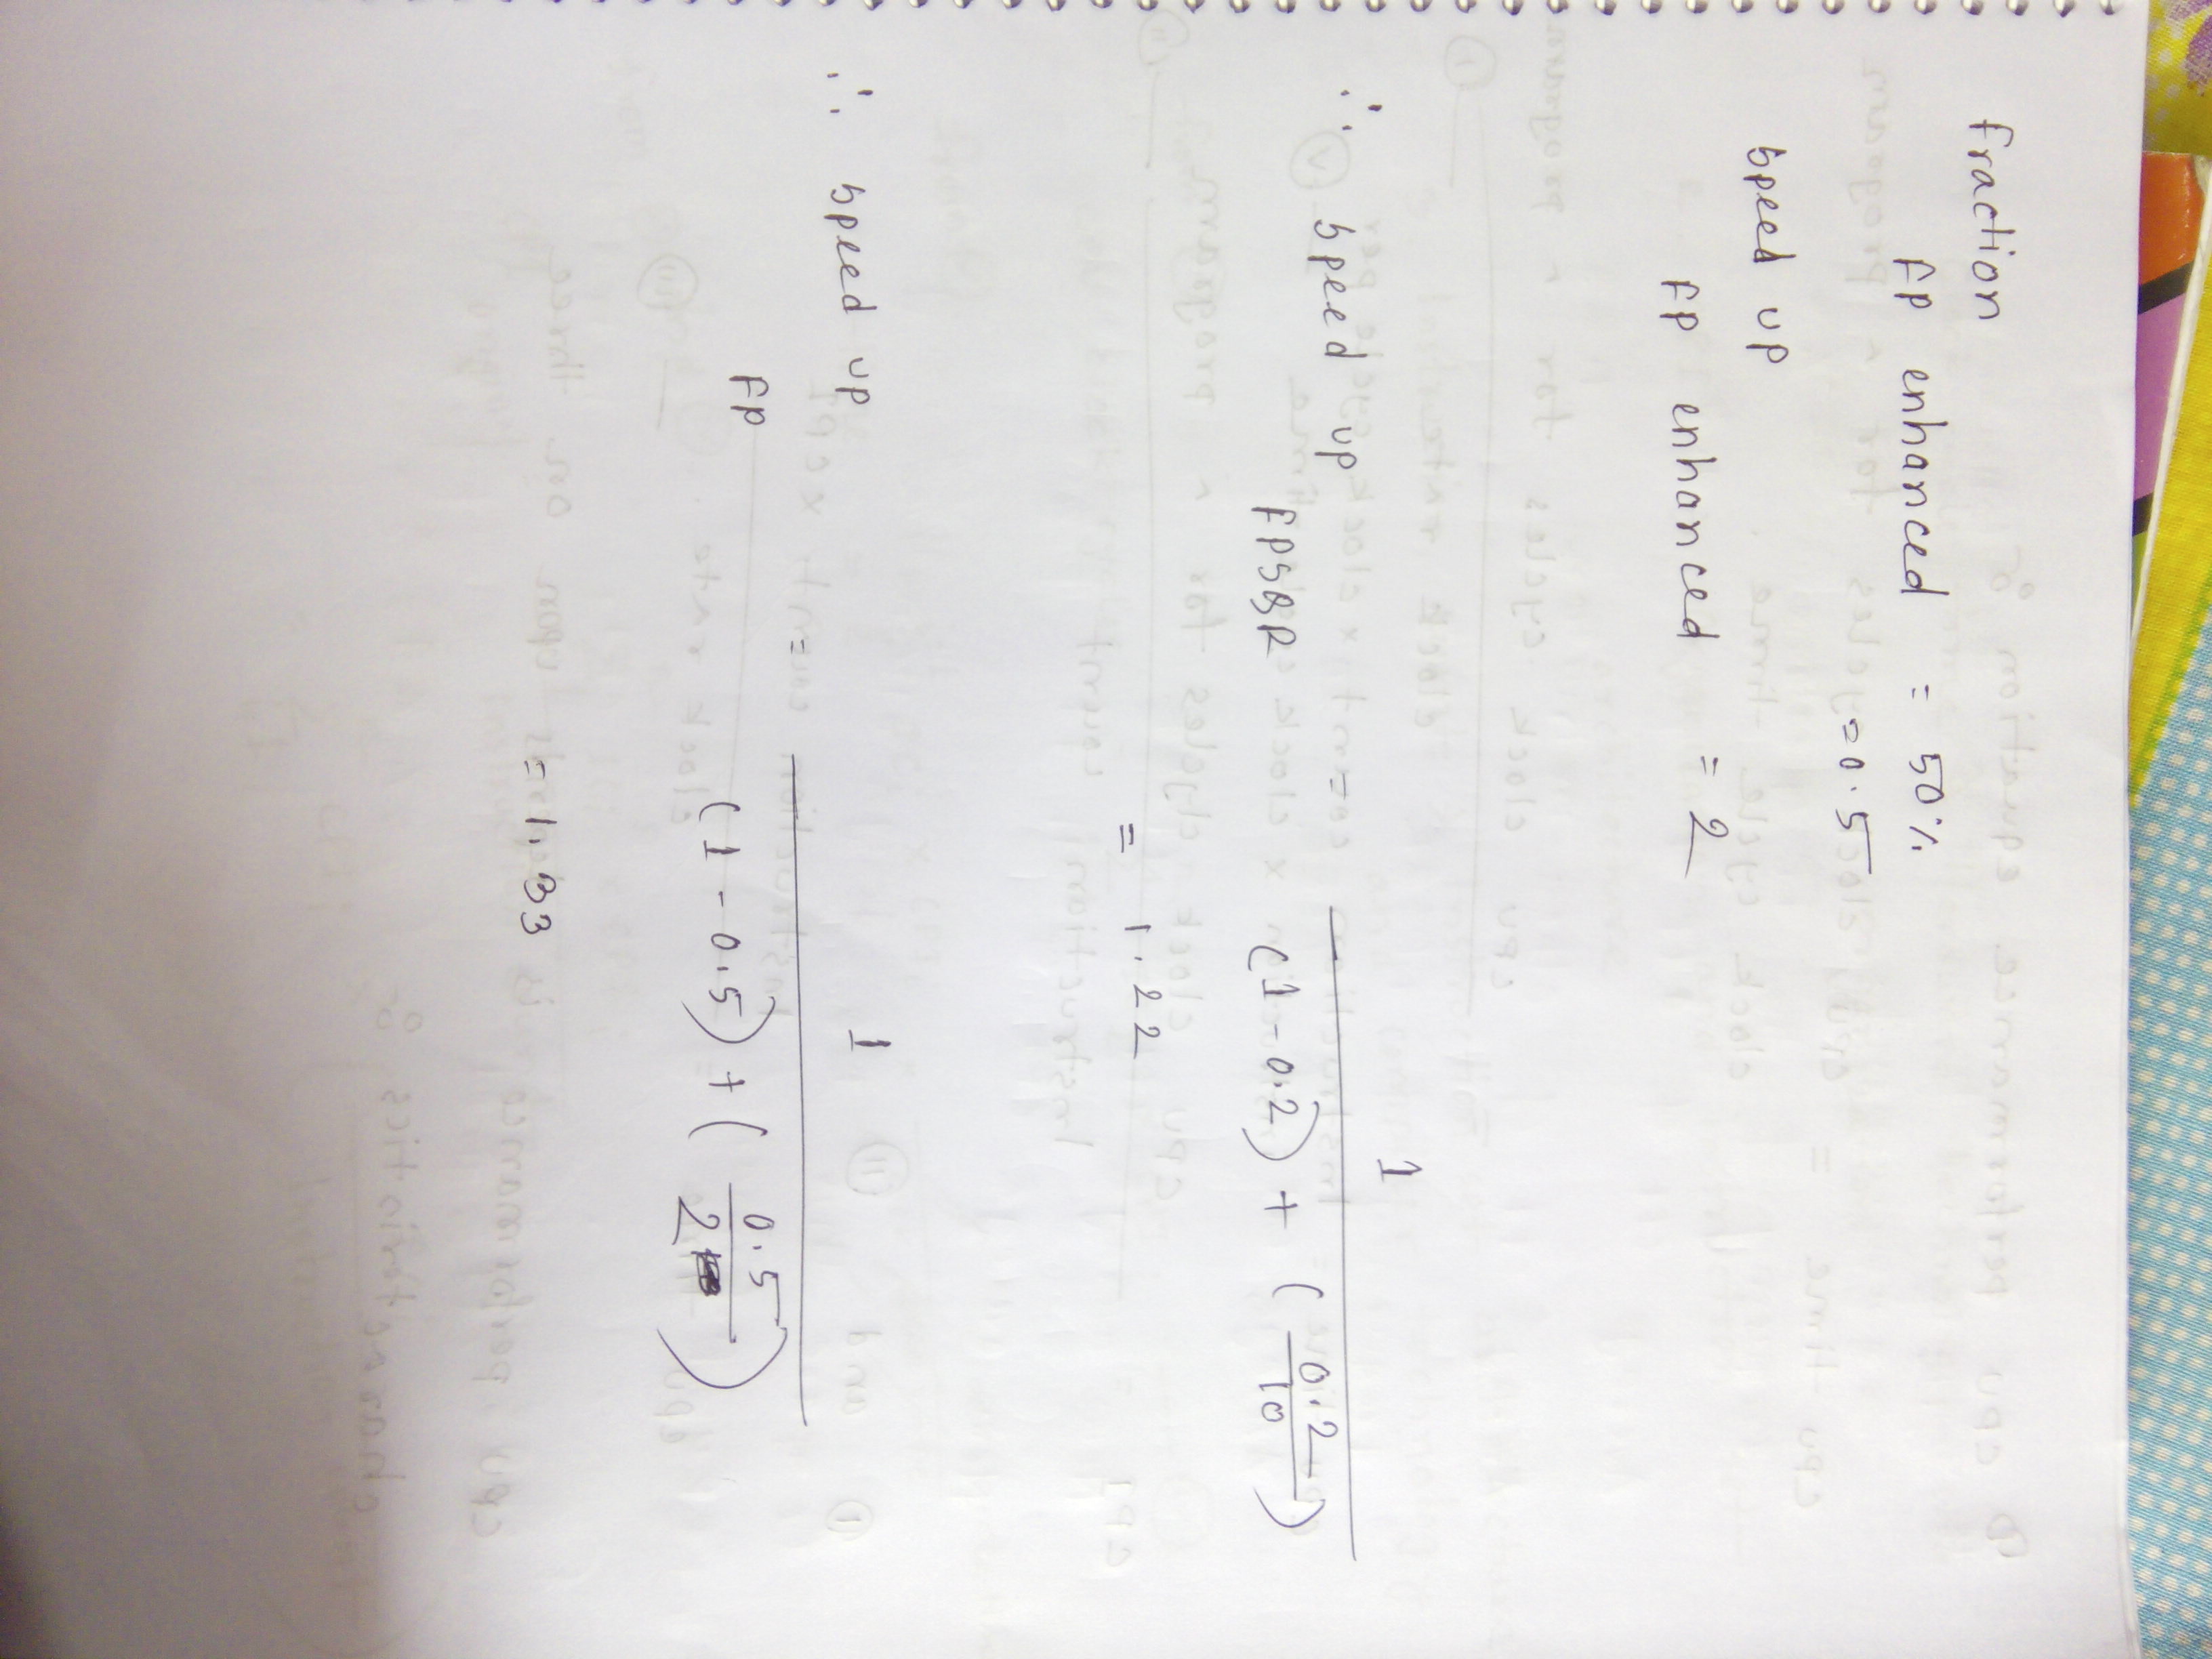 fraction
FP enhanced = 50%
= 0.5
Speed up
FP enhanced = 2
∴ Speed up FPSQR = 1 / ((1 - 0.2) + (0.2 / 10))
= 1.22
∴ Speed up FP = 1 / ((1 - 0.5) + (0.5 / 2))
= 1.33